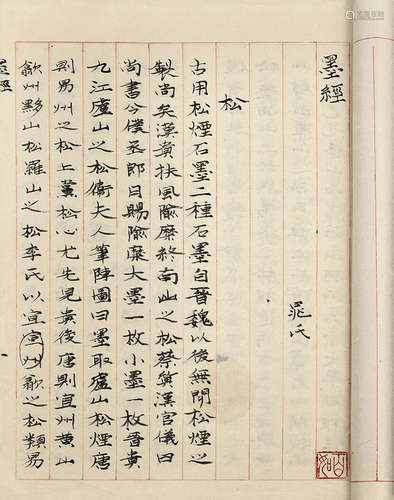 墨經
晁氏
松
古用松煙石墨二種石墨自晉魏以後無聞松煙之
製尚矣漢貴扶風隃糜終南山之松蔡質漢官儀曰
尚書令僕丞郎月賜隃糜大墨一枚小墨一枚晉貴
九江廬山之松衛夫人筆陣圖曰墨取廬山松煙唐
則易州之松上黨松心尤先見貴後唐則宜州黃山
歙州黟山松羅山之松李氏以宣宣州歙之松類易
墨經